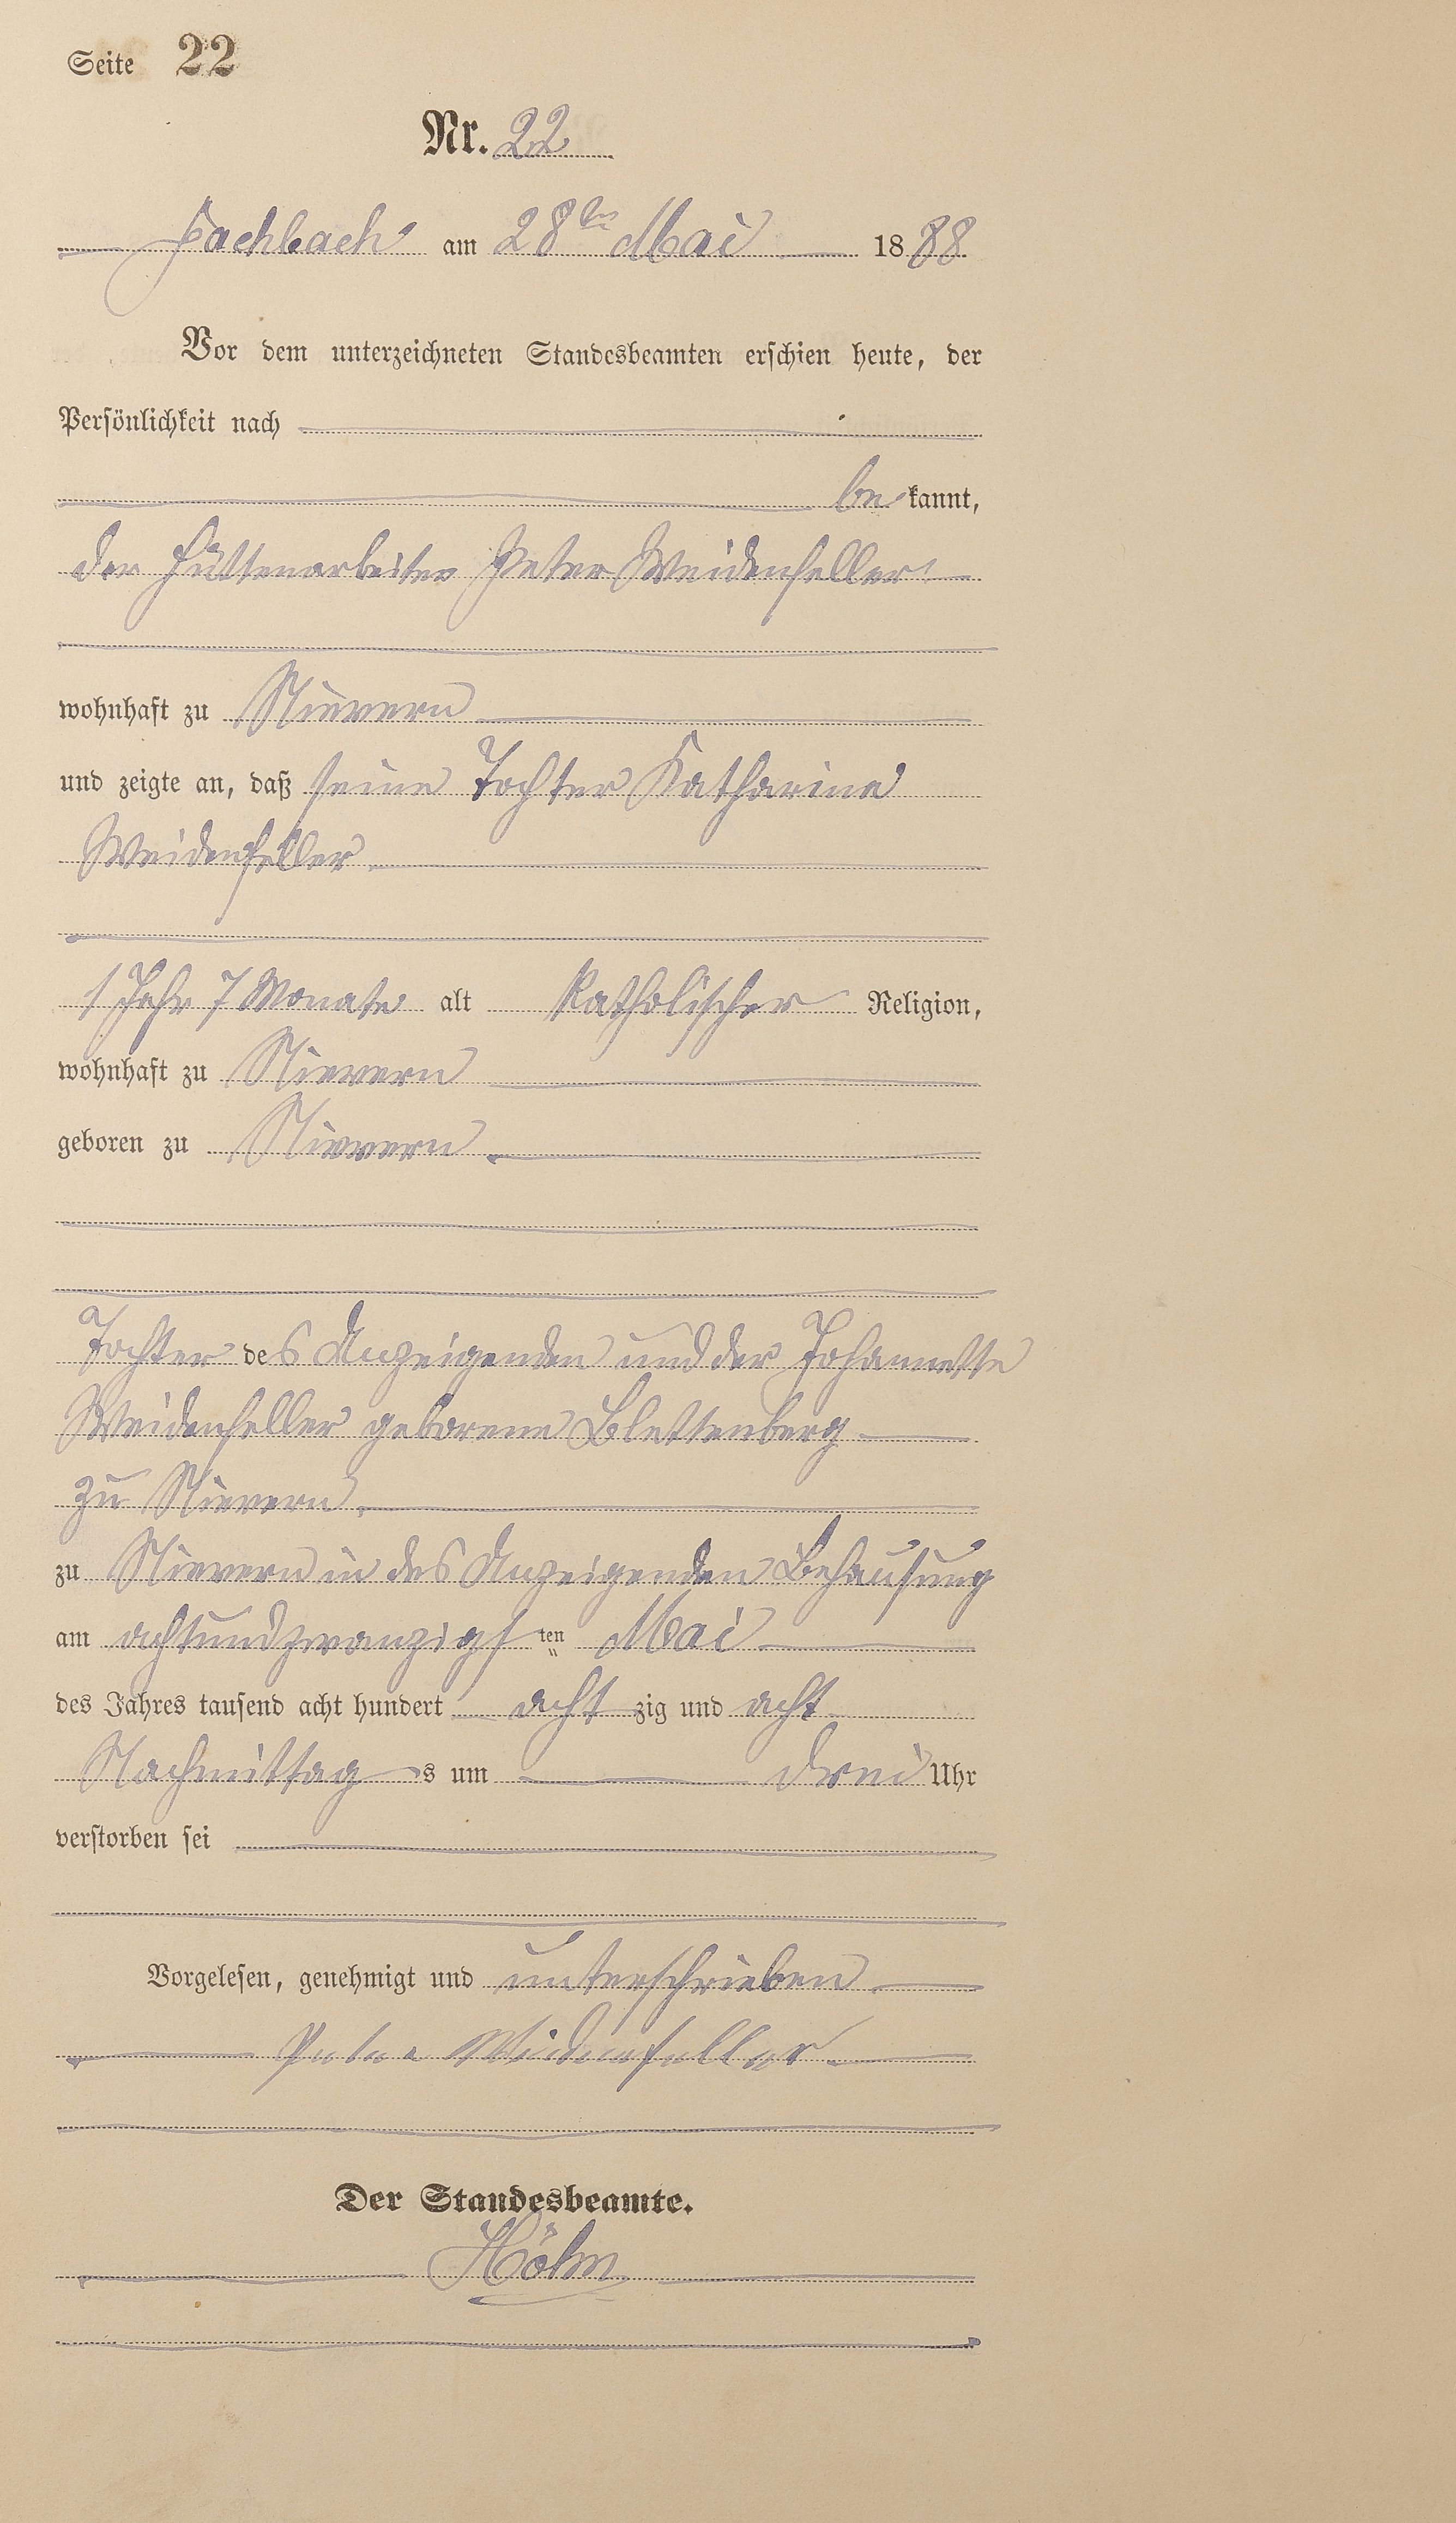 Seite 22
Nr. 22
Fachbach am 28ten Mai 1888
Vor dem unterzeichneten Standesbeamten erschien heute, der
Persönlichkeit nach
bekannt,
der Hüttenarbeiter Peter Weidenfeller
wohnhaft zu Nievern
und zeigte an, daß seine Tochter Katharina
Weidenfeller
1 Jahr 7 Monate alt katholischer Religion,
wohnhaft zu Nievern
geboren zu Nievern
Tochter des Anzeigenden und der Johannette
Weidenfeller geborene Blettenberg
zu Nievern
zu Nievern in des Anzeigenden Behausung
am achtundzwanzigsten Mai
des Jahres tausend acht hundert achtzig und acht
Nachmittags um drei Uhr
verstorben sei
Vorgelesen, genehmigt und unterschrieben
Peter Weidenfeller
Der Standesbeamte.